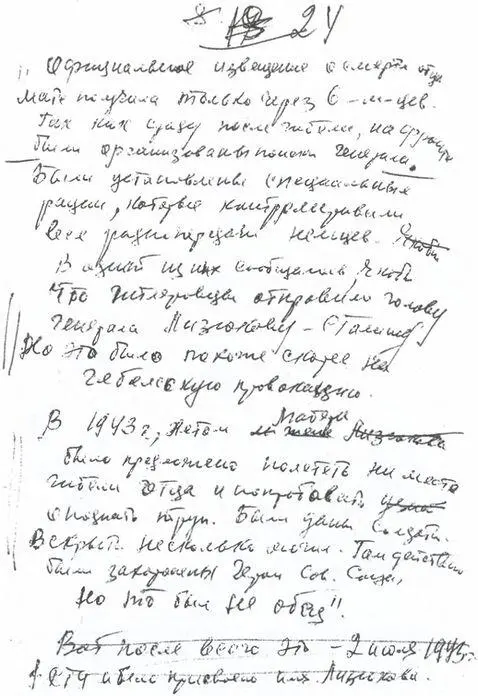 24
" Официальное извещение о смерти отца
мать получила только через 6-м-цев.
Так как сразу после гибели, на фронте
были организованы поиски генерала.
Были установлены специальные
рации, которые контролировали
все радиопередачи немцев.
В одной из них сообщалось, якобы
что гитлеровцы отправили голову
генерала Лизюкова - Сталину
Но это было похоже скорее на
геббельскую провокацию.
Матери
В 1943 г, летом
было предложено полететь на место
гибели отца и попробовать
опознать труп. Были даны солдаты.
Вскрыты несколько могил. Там действ
были захоронены Герои Сов. Союза,
Но то был не отец".
Вот после всего это - 2 июля 1945г
и было присвоено имя Лизюкова.